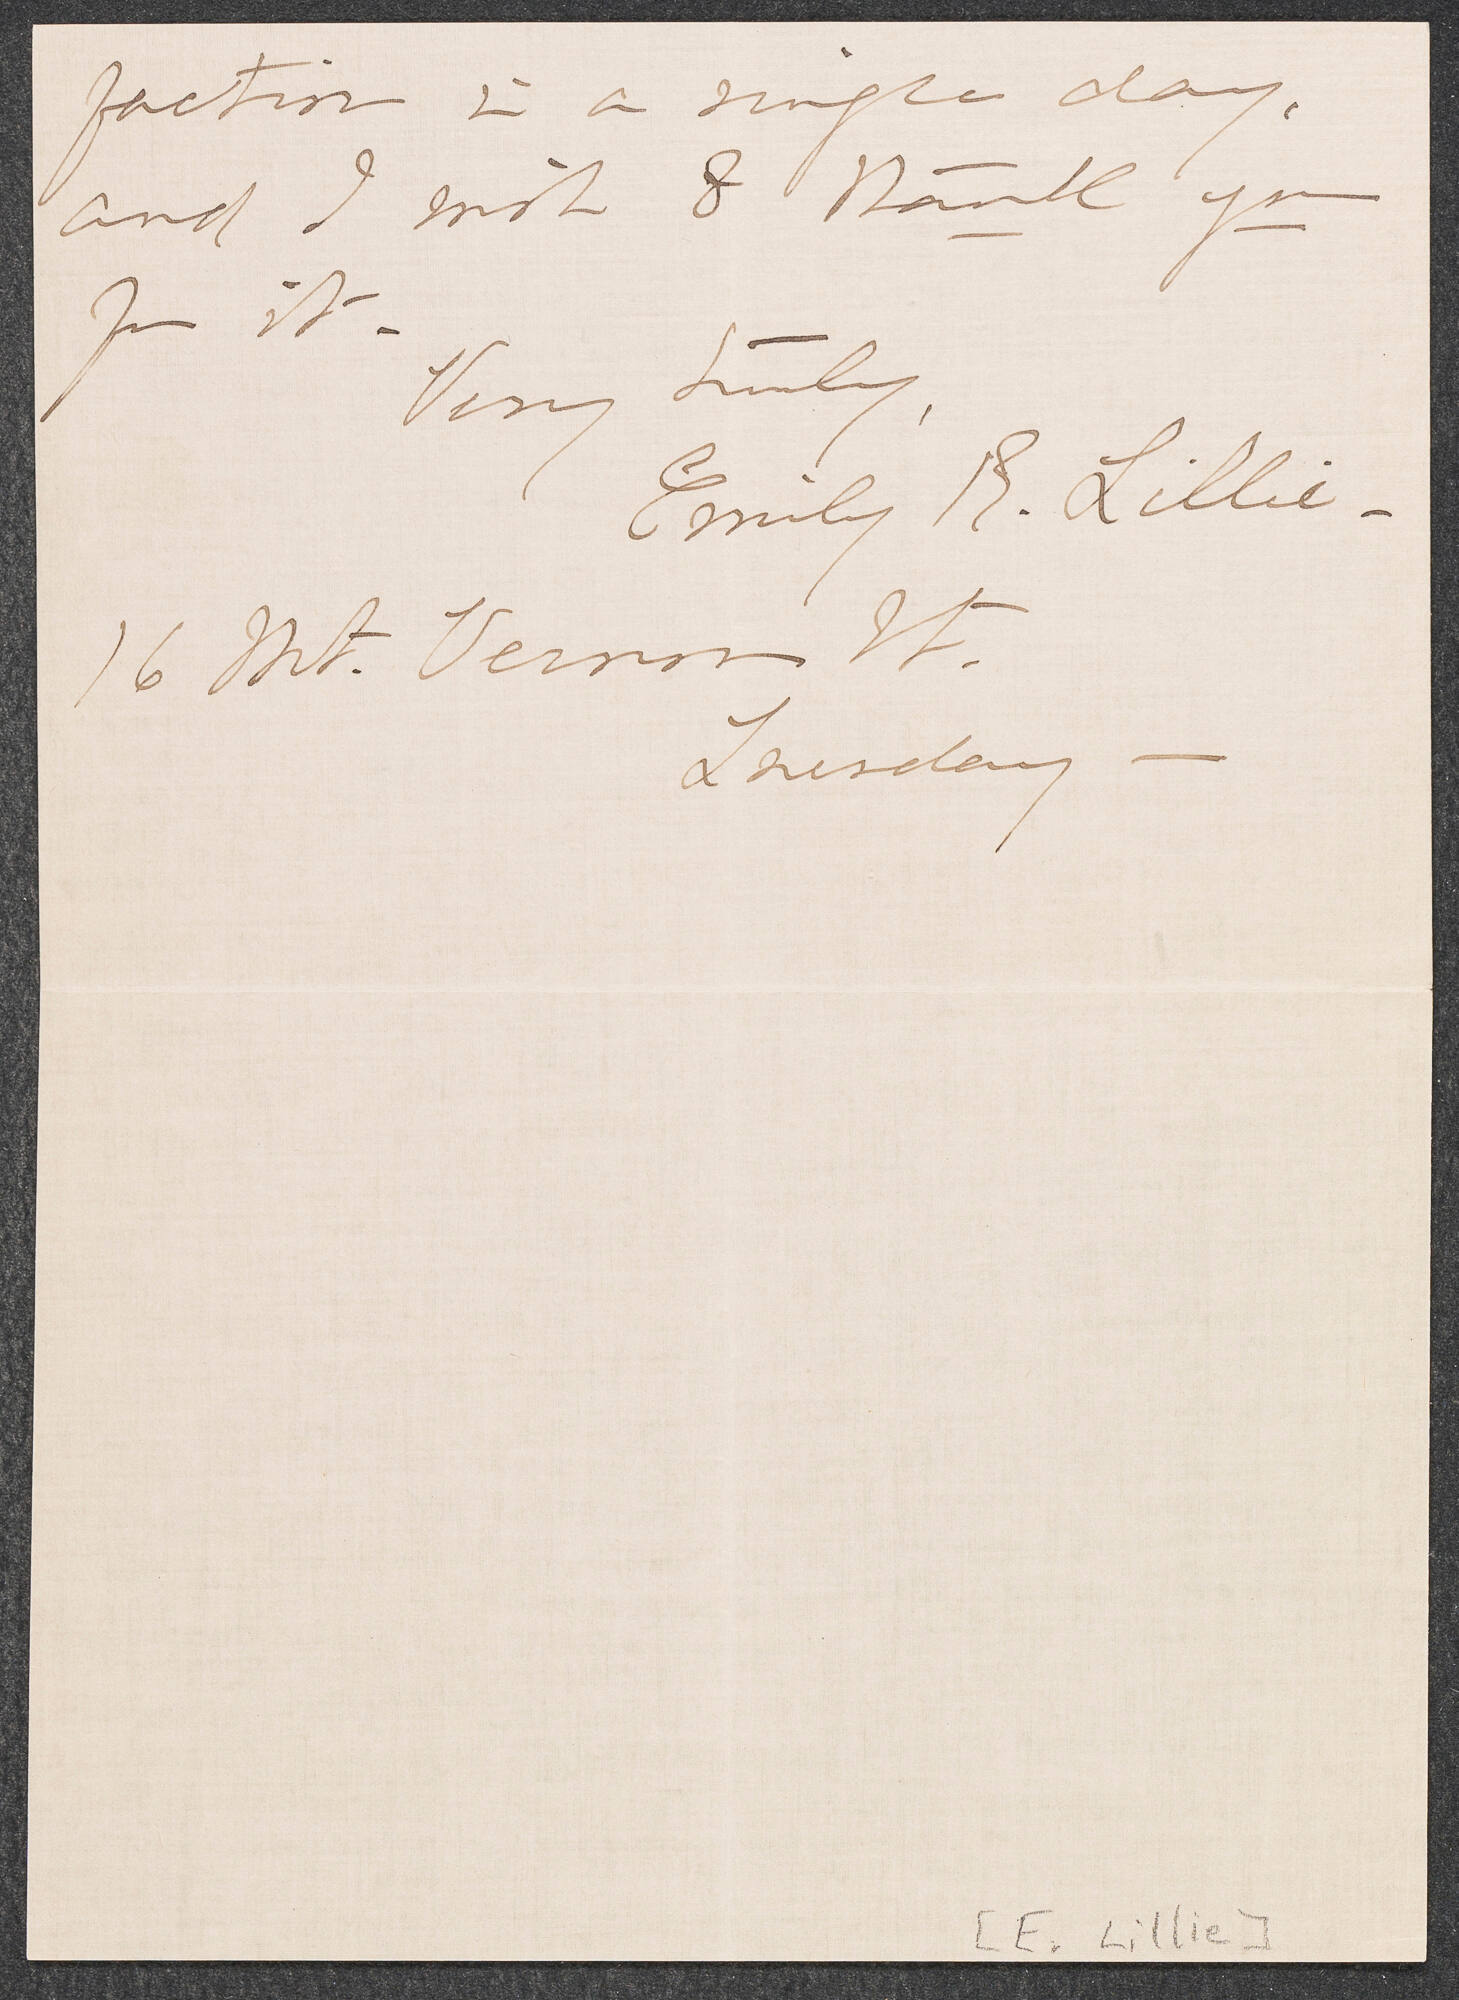 faction in a single day,
and I wish to thank you
for it.
Very truly,
Emily R. Lillie -
16 Mt. Vernon St.
Tuesday —
[E. Lillie]